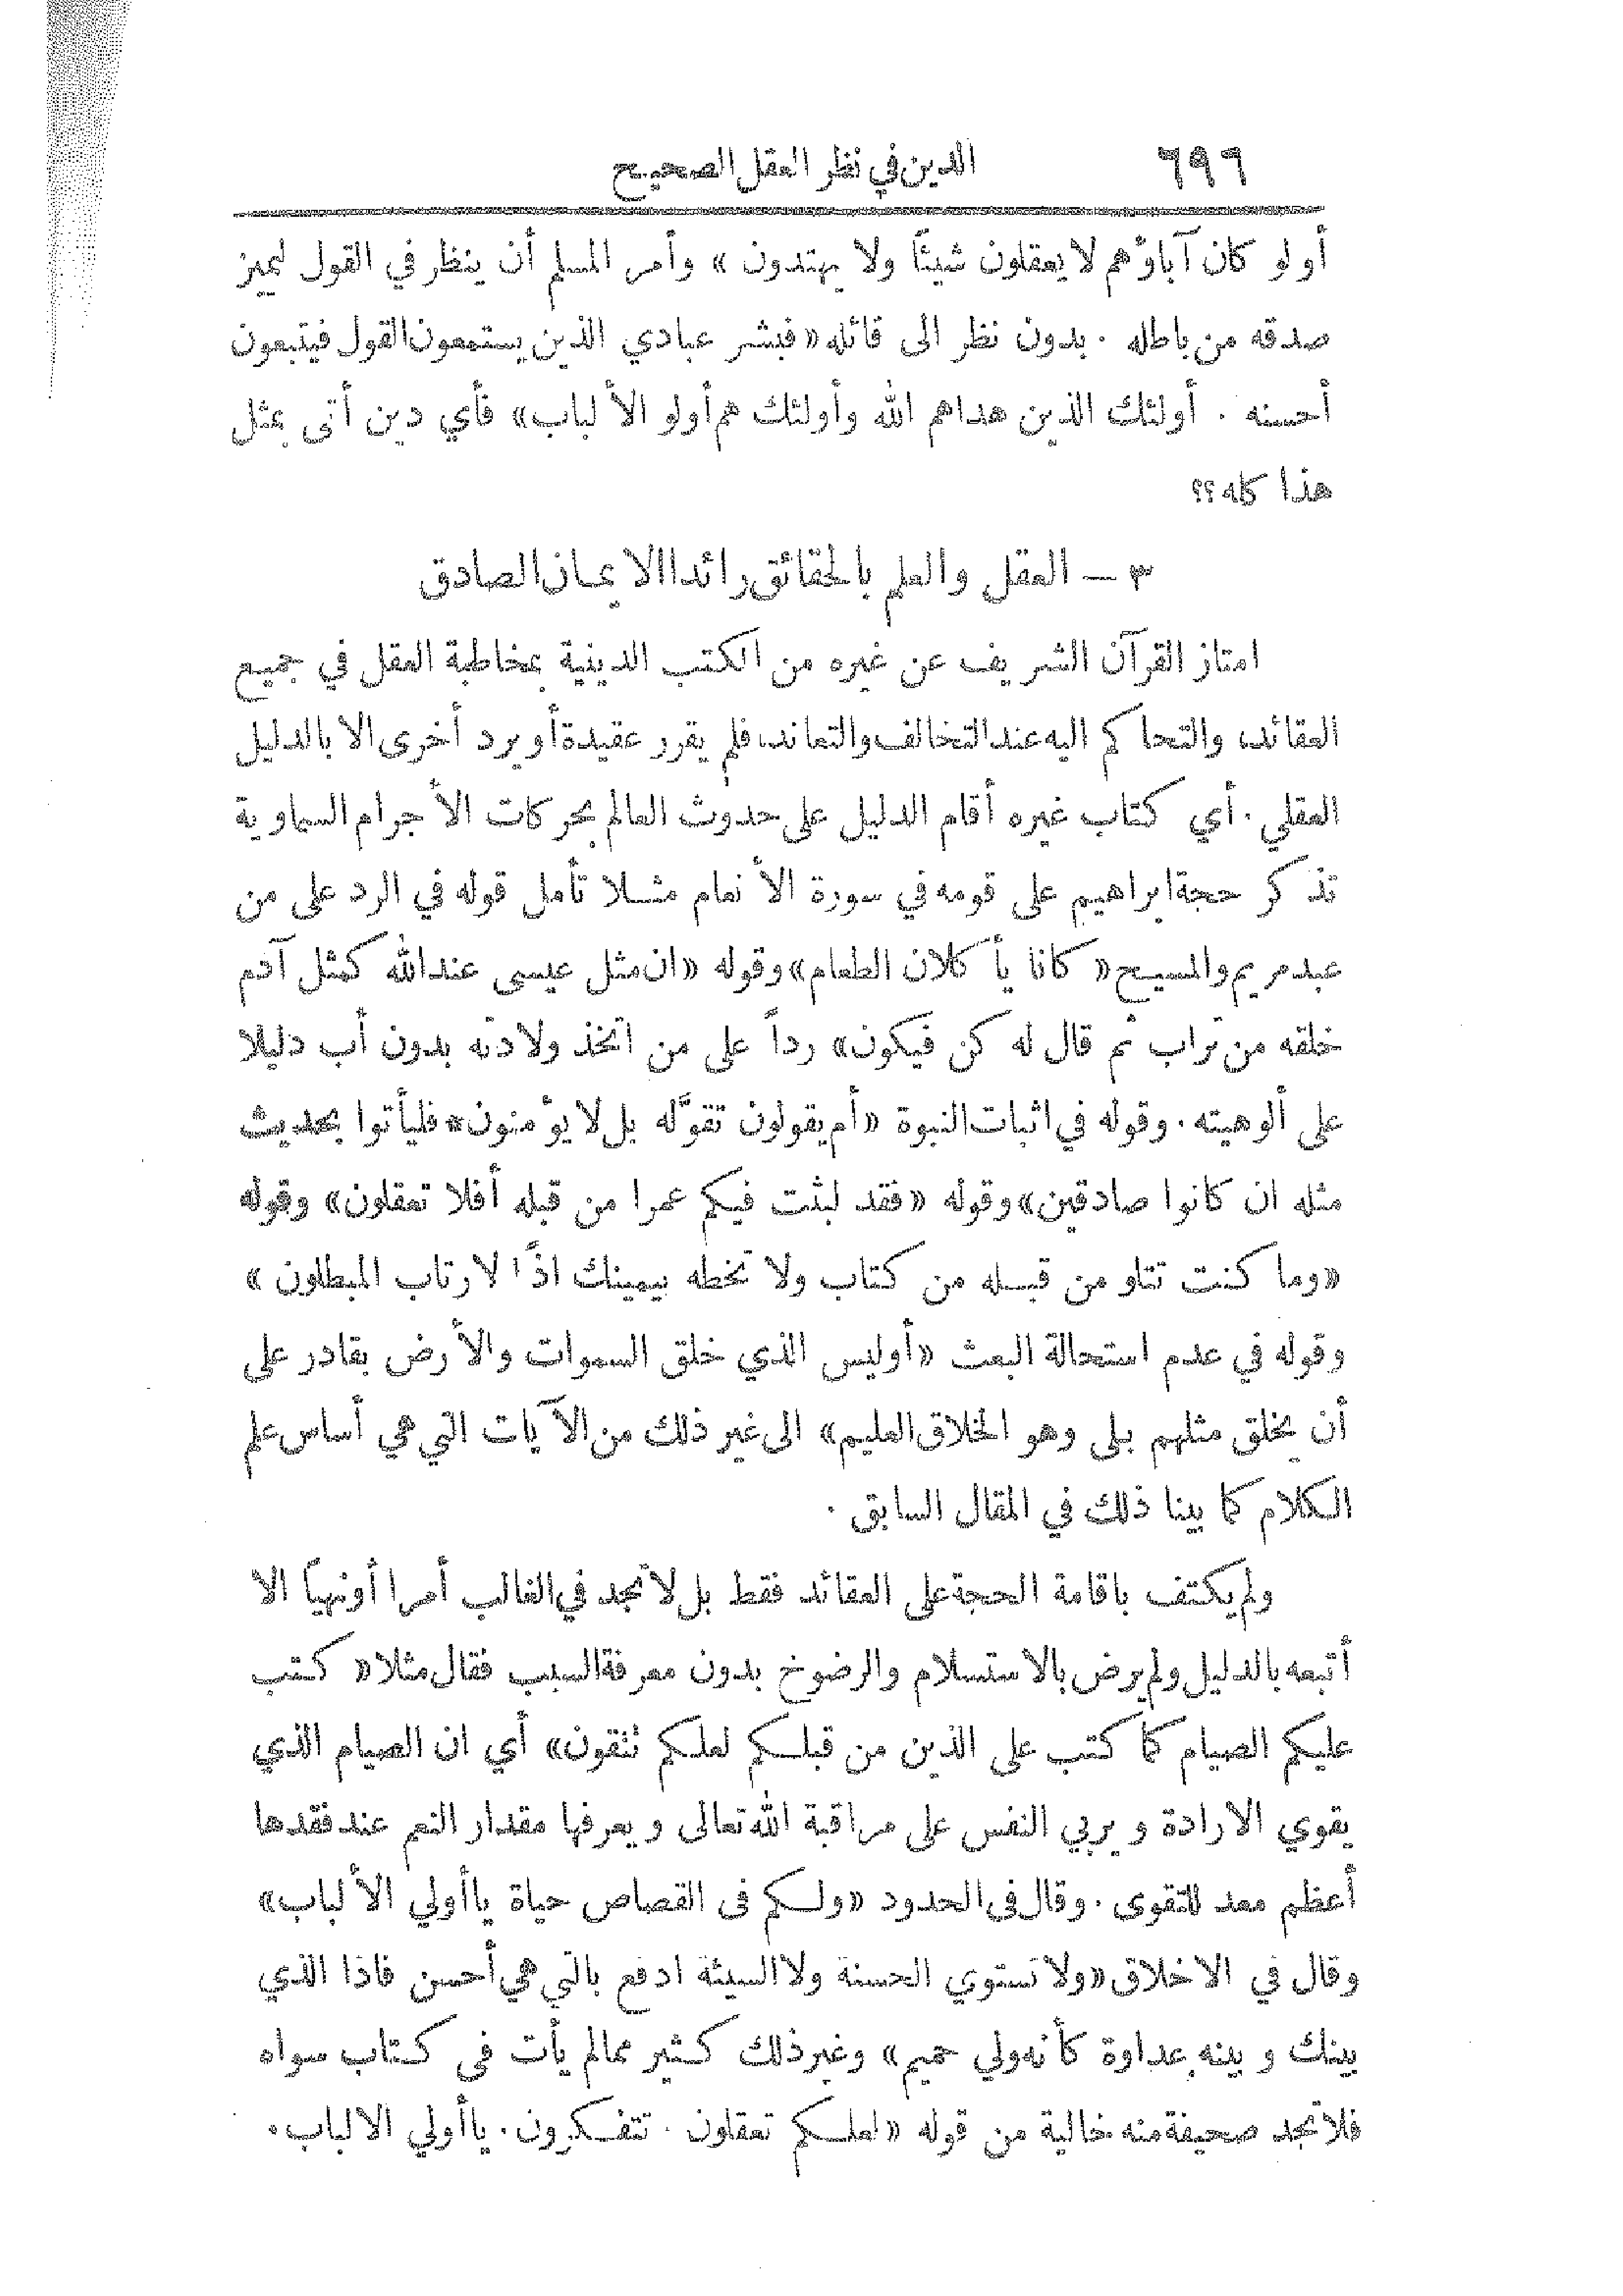 ٦٩٦ الدين في نظر العقل الصحيح
أولو كان آباؤهم لا يعقلون شيئًا ولا يهتدون » وأمر المسلم أن ينظر في القول ليميز
صدقه من باطله . بدون نظر الى قائله « فبشر عبادي الذين يستمعون القول فيتبعون
أحسنه . أولئك الذين هداهم الله وأولئك هم أولو الألباب» فأي دين أتى بمثل
هذا كله ؟؟
٣ — العقل والعلم بالحقائق رائدا الايمان الصادق
امتاز القرآن الشريف عن غيره من الكتب الدينية بمخاطبة العقل في جميع
العقائد، والتحاكم اليه عند التخالف والتعاند، فلم يقرر عقيدة أو يرد أخرى الا بالدليل
العقلي . أي كتاب غيره أقام الدليل على حدوث العالم بحركات الأجرام السماوية
تذكر حجة ابراهيم على قومه في سورة الأنعام مثلا تأمل قوله في الرد على من
عبد مريم والمسيح « كانا يأكلان الطعام» وقوله «ان مثل عيسى عند الله كمثل آدم
خلقه من تراب ثم قال له كن فيكون» رداً على من اتخذ ولادته بدون أب دليلا
على ألوهيته . وقوله في اثبات النبوة «أم يقولون تقوَّله بل لا يؤمنون* فليأتوا بحديث
مثله ان كانوا صادقين» وقوله «فقد لبثت فيكم عمرا من قبله أفلا تعقلون» وقوله
«وما كنت تتلو من قبله من كتاب ولا تخطه بيمينك اذًا لارتاب المبطلون »
وقوله في عدم استحالة البعث «أوليس الذي خلق السموات والأرض بقادر على
أن يخلق مثلهم بلى وهو الخلاق العليم» الى غير ذلك من الآيات التي هي أساس علم
الكلام كما بينا ذلك في المقال السابق .
ولم يكتف باقامة الحجة على العقائد فقط بل لا تجد في الغالب أمرا أو نهيًا الا
أتبعه بالدليل ولم يرض بالاستسلام والرضوخ بدون معرفة السبب فقال مثلا « كتب
عليكم الصيام كما كتب على الذين من قبلكم لعلكم تتقون» أي ان الصيام الذي
يقوي الارادة و يربي النفس على مراقبة الله تعالى و يعرفها مقدار النعم عند فقدها
أعظم معد للتقوى . وقال في الحدود «ولكم في القصاص حياة يا أولي الألباب»
وقال في الاخلاق «ولا تستوي الحسنة ولا السيئة ادفع بالتي هي أحسن فاذا الذي
بينك و بينه عداوة كأنه ولي حميم» وغير ذلك كثير مما لم يأت في كتاب سواه
فلا تجد صحيفة منه خالية من قوله «لعلكم تعقلون . تتفكرون . يا أولي الالباب .